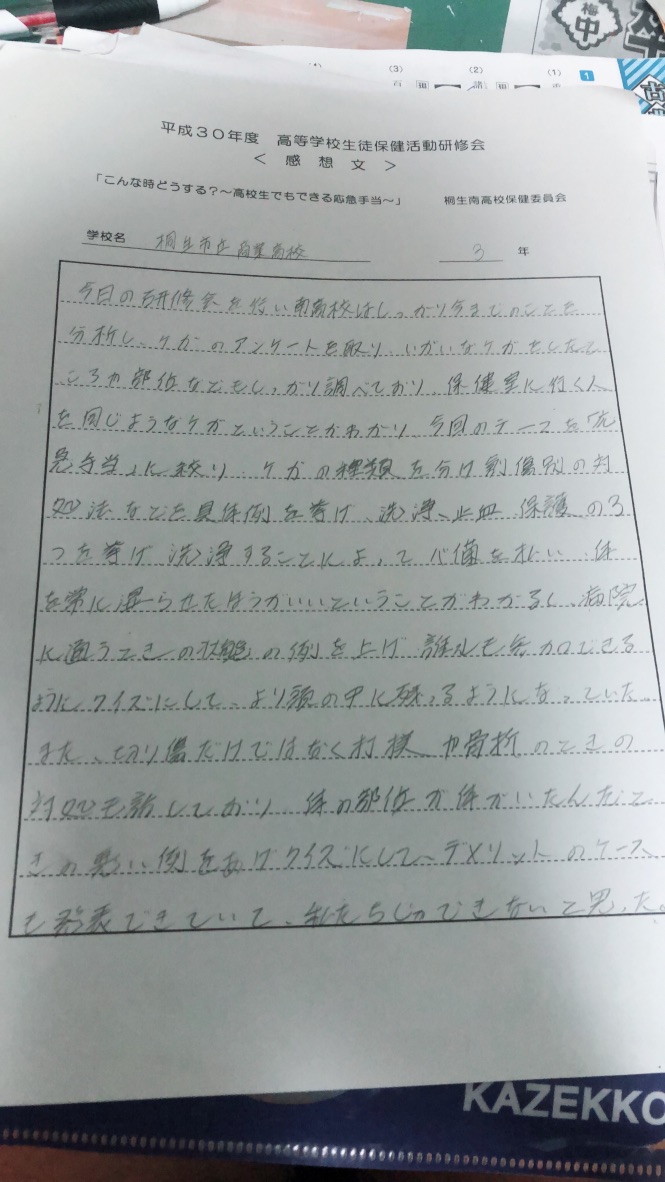 梅
中
(3)
(2)
(1)
1
平成30年度 高等学校生徒保健活動研修会
< 感 想 文 >
「こんな時どうする?～高校生でもできる応急手当～」 桐生南高校保健委員会
学校名 桐生市立商業高校 3 年
今日の研修会を行い南高校はしっかり今までのことを
分析し、ケガのアンケートを取り、いがいなケガをしたと
ころや部位などもしっかり調べており、保健室に行く人
を同じようなケガということがわかり、今回のテーマを「応
急手当」に絞り、ケガの種類を分け割傷別の対
処法などを具体例を挙げ、洗浄、止血、保護の3
つを挙げ、洗浄することによってバ菌を 体
を常に湿らせたほうがいいということがわかるし、病院
に通うときの状態の例を上げ、誰れも参加できる
ようにクイズにして、より頭の中に残るようになっていた。
また、切り傷だけではなく打撲や骨折のときの
対処も話しており、体の部位が体がいたんだと
きの悪い例をあげクイズにして、デメリットのケース
も発表できていて、私たちじゃできないと思った。
KAZEKKO